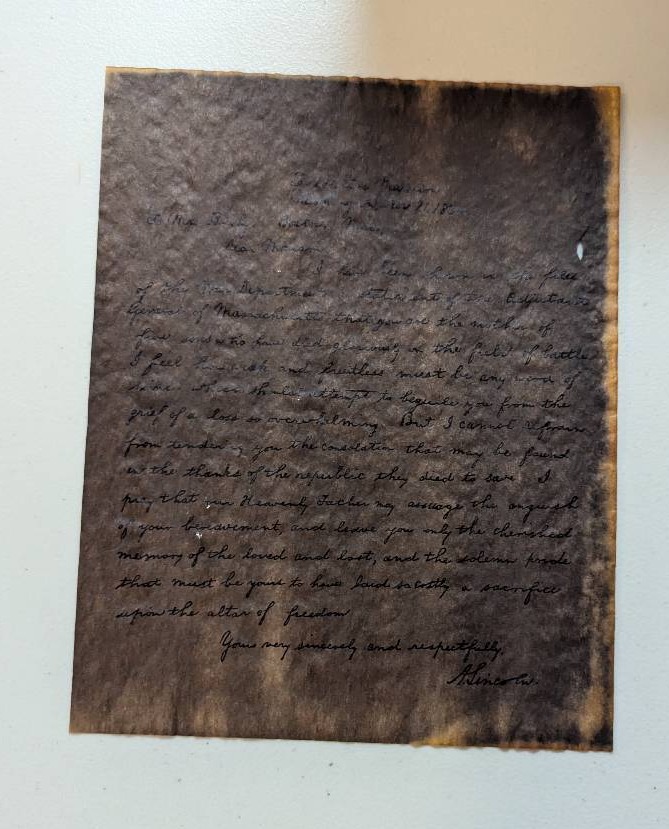 Executive Mansion
Washington, Nov 21, 18
To Mrs Bixby, Boston, Mass.
Dear Madam,
I have been shown in the files
of the War Department a statement of the Adjutant
General of Massachusetts that you are the mother of
five sons who have died gloriously on the field of battle
I feel how weak and fruitless must be any word of
mine which should attempt to beguile you from the
grief of a loss so overwhelming. But I cannot refrain
from tendering you the consolation that may be found
in the thanks of the republic they died to save. I
pray that our Heavenly Father may assuage the anguish
of your bereavement, and leave you only the cherished
memory of the loved and lost, and the solemn pride
that must be yours to have laid so costly a sacrifice
upon the altar of freedom
Yours very sincerely and respectfully,
A. Lincoln.